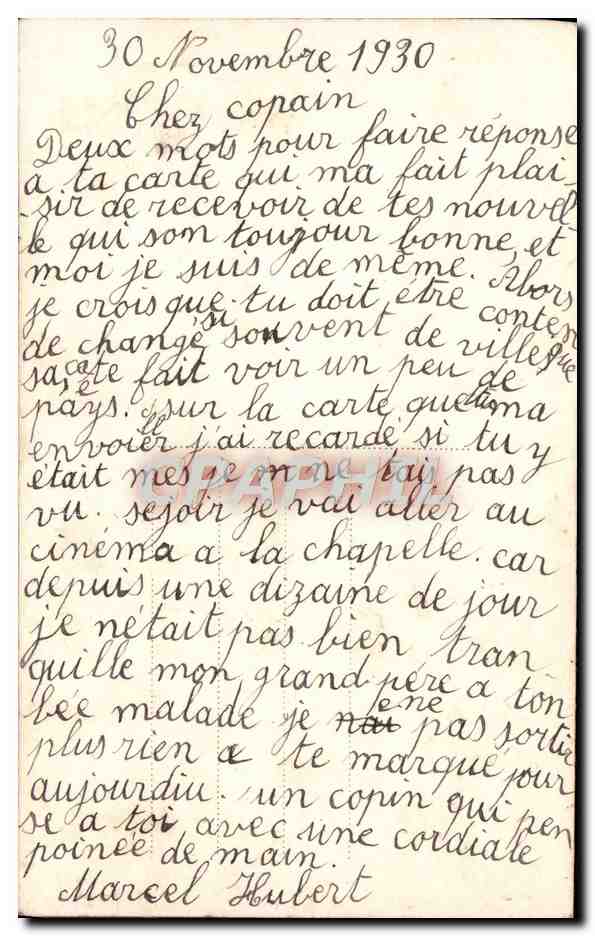 30 Novembre 1930
Chez copain
Deux mots pour faire réponse
a ta carte qui ma fait plai-
sir de recevoir de tes nouvel-
le qui son toujour bonne, et
moi je suis de même. Abors
je crois que tu doit être conten
de changé si souvent de ville que
sa, ca te fait voir un peu de
pays. sur la carte que tu ma
envoier j'ai recardé si tu y
était mes je m ne tais pas
vu. sejoir je vai aller au
cinéma a la chapelle. car
depuis une dizaine de jour
je nétait pas bien tran
quille mon grand père a ton
bée malade je ene pas sortir
plus rien a te marqué pour
aujourdiu. un copin qui pen
se a toi avec une cordiale
poinée de main.
Marcel Hubert
CPAPHIL